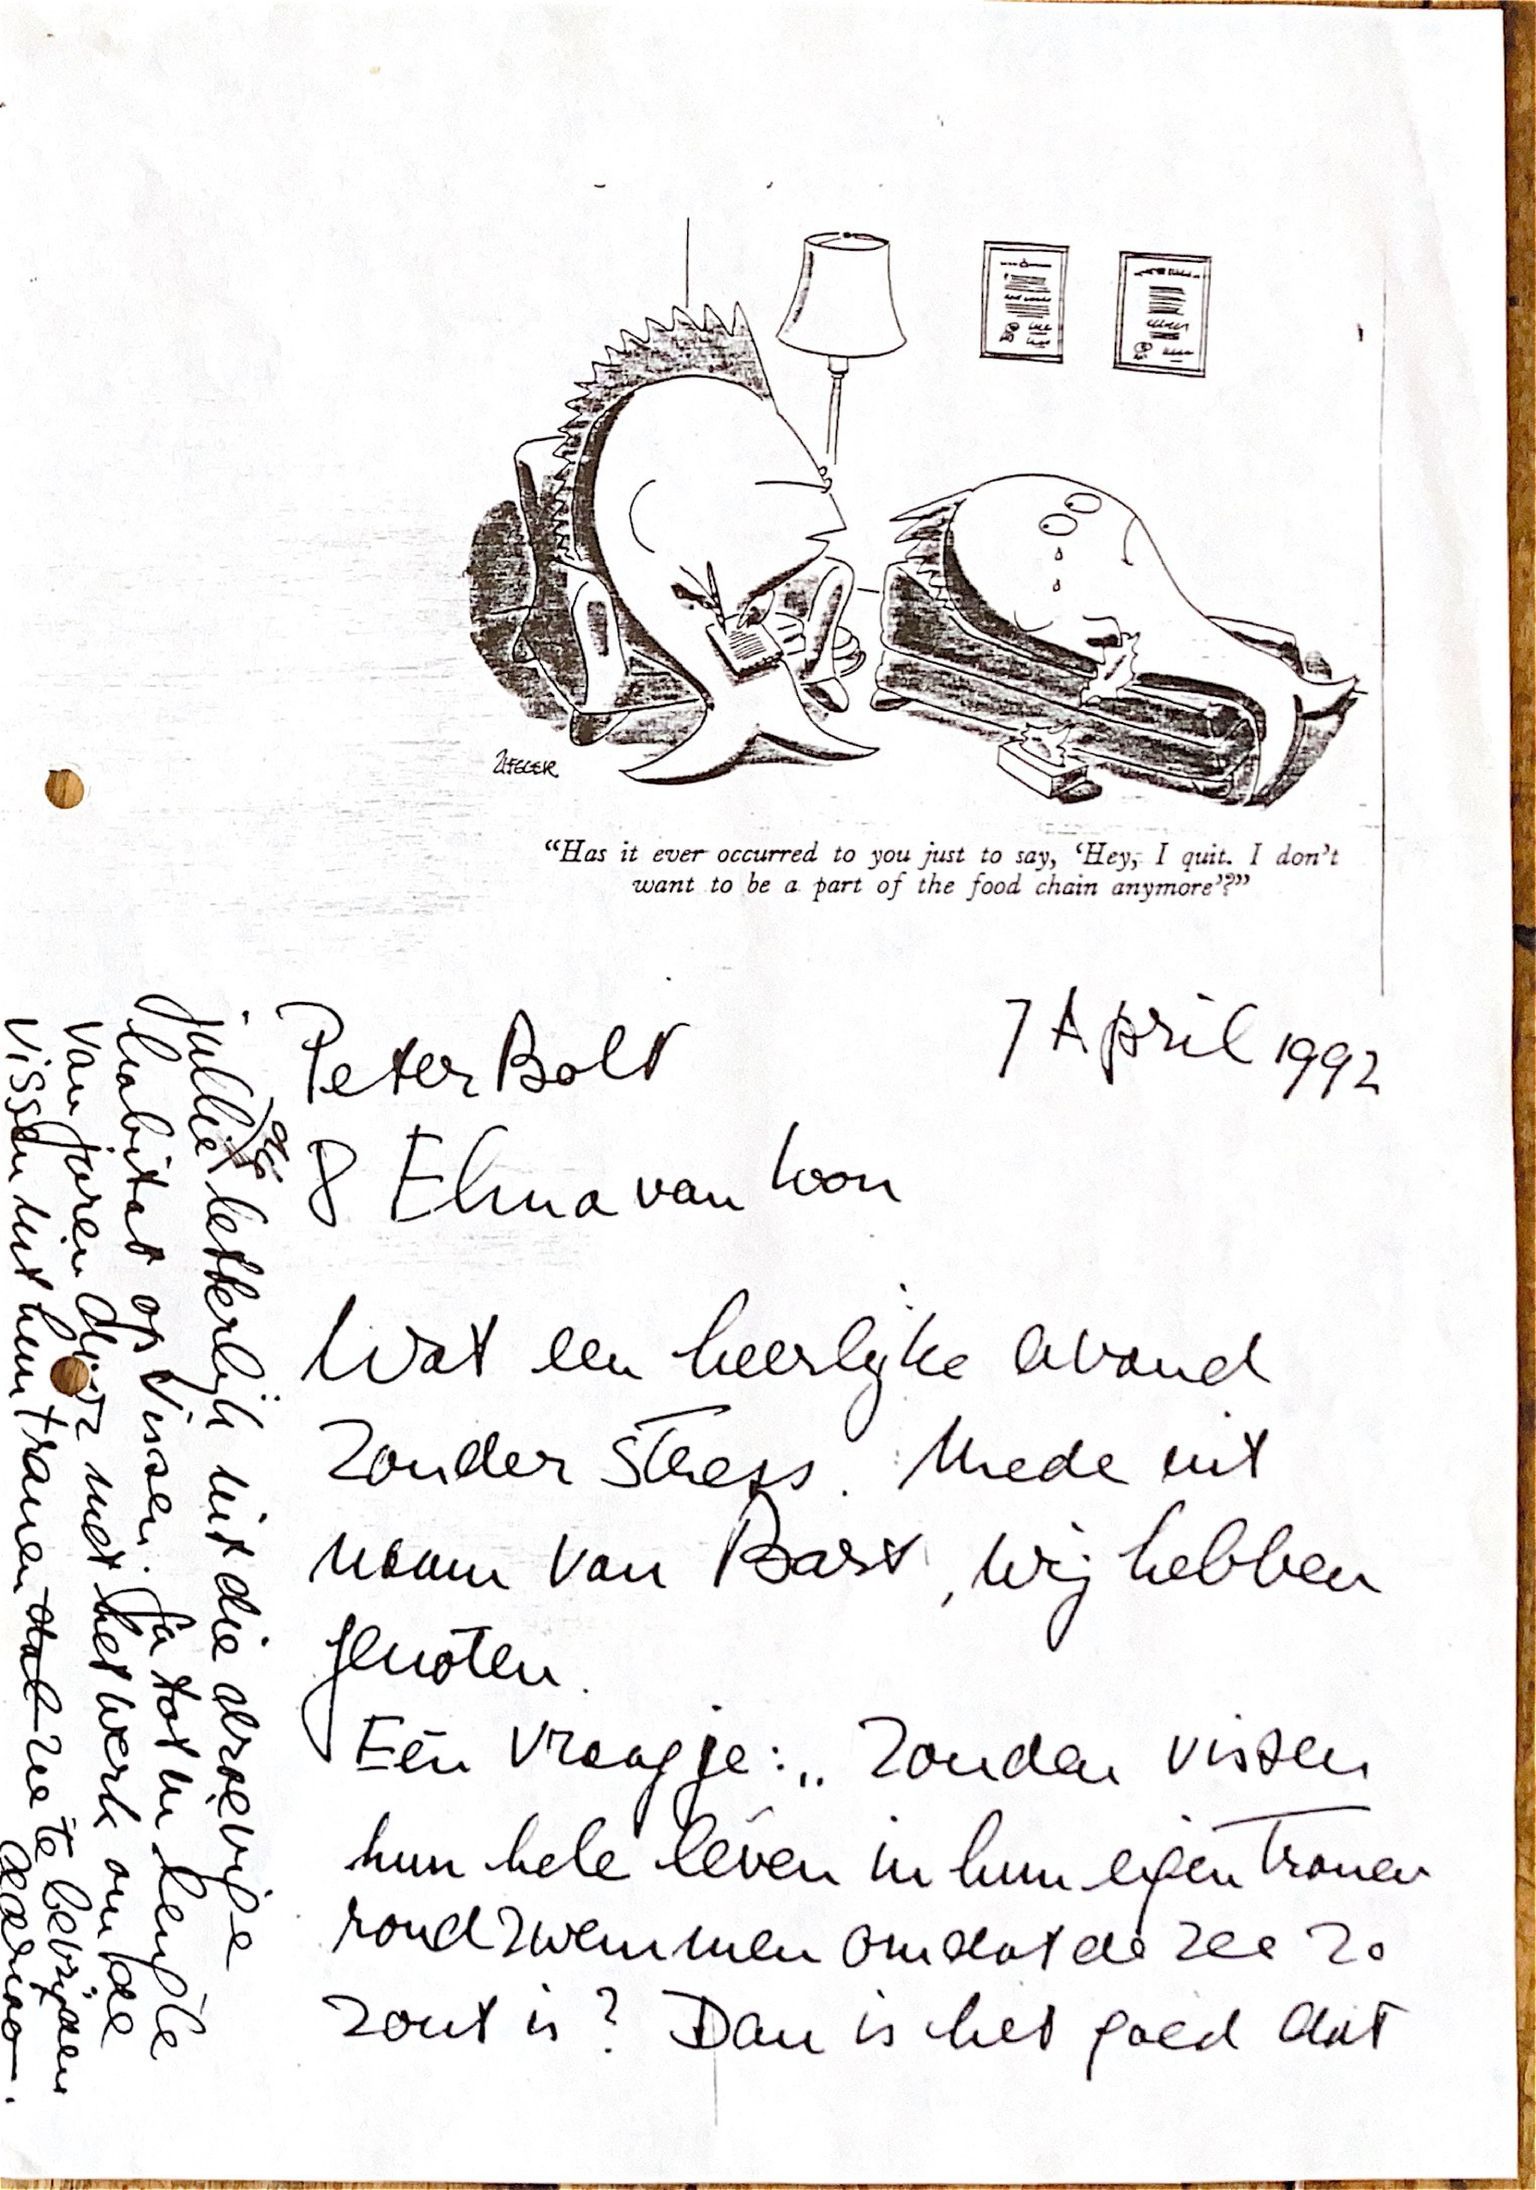 ZIEGLER
“Has it ever occurred to you just to say, ‘Hey, I quit. I don’t
want to be a part of the food chain anymore’?”
7 April 1992
Peter Bolt
& Elma van Loon
Wat een heerlijke avond
zonder stress. Mede uit
naam van Bart, wij hebben
genoten.
Eén vraagje: „Zouden vissen
hun hele leven in hun eigen tranen
rondzwemmen omdat de zee zo
zout is? Dan is het goed dat
jullie letterlijk uit die droevige
habitat op vissen. Ga tot in lengte
van jaren door met het werk om de
vissen uit hun tranen dal zee te bevrijden